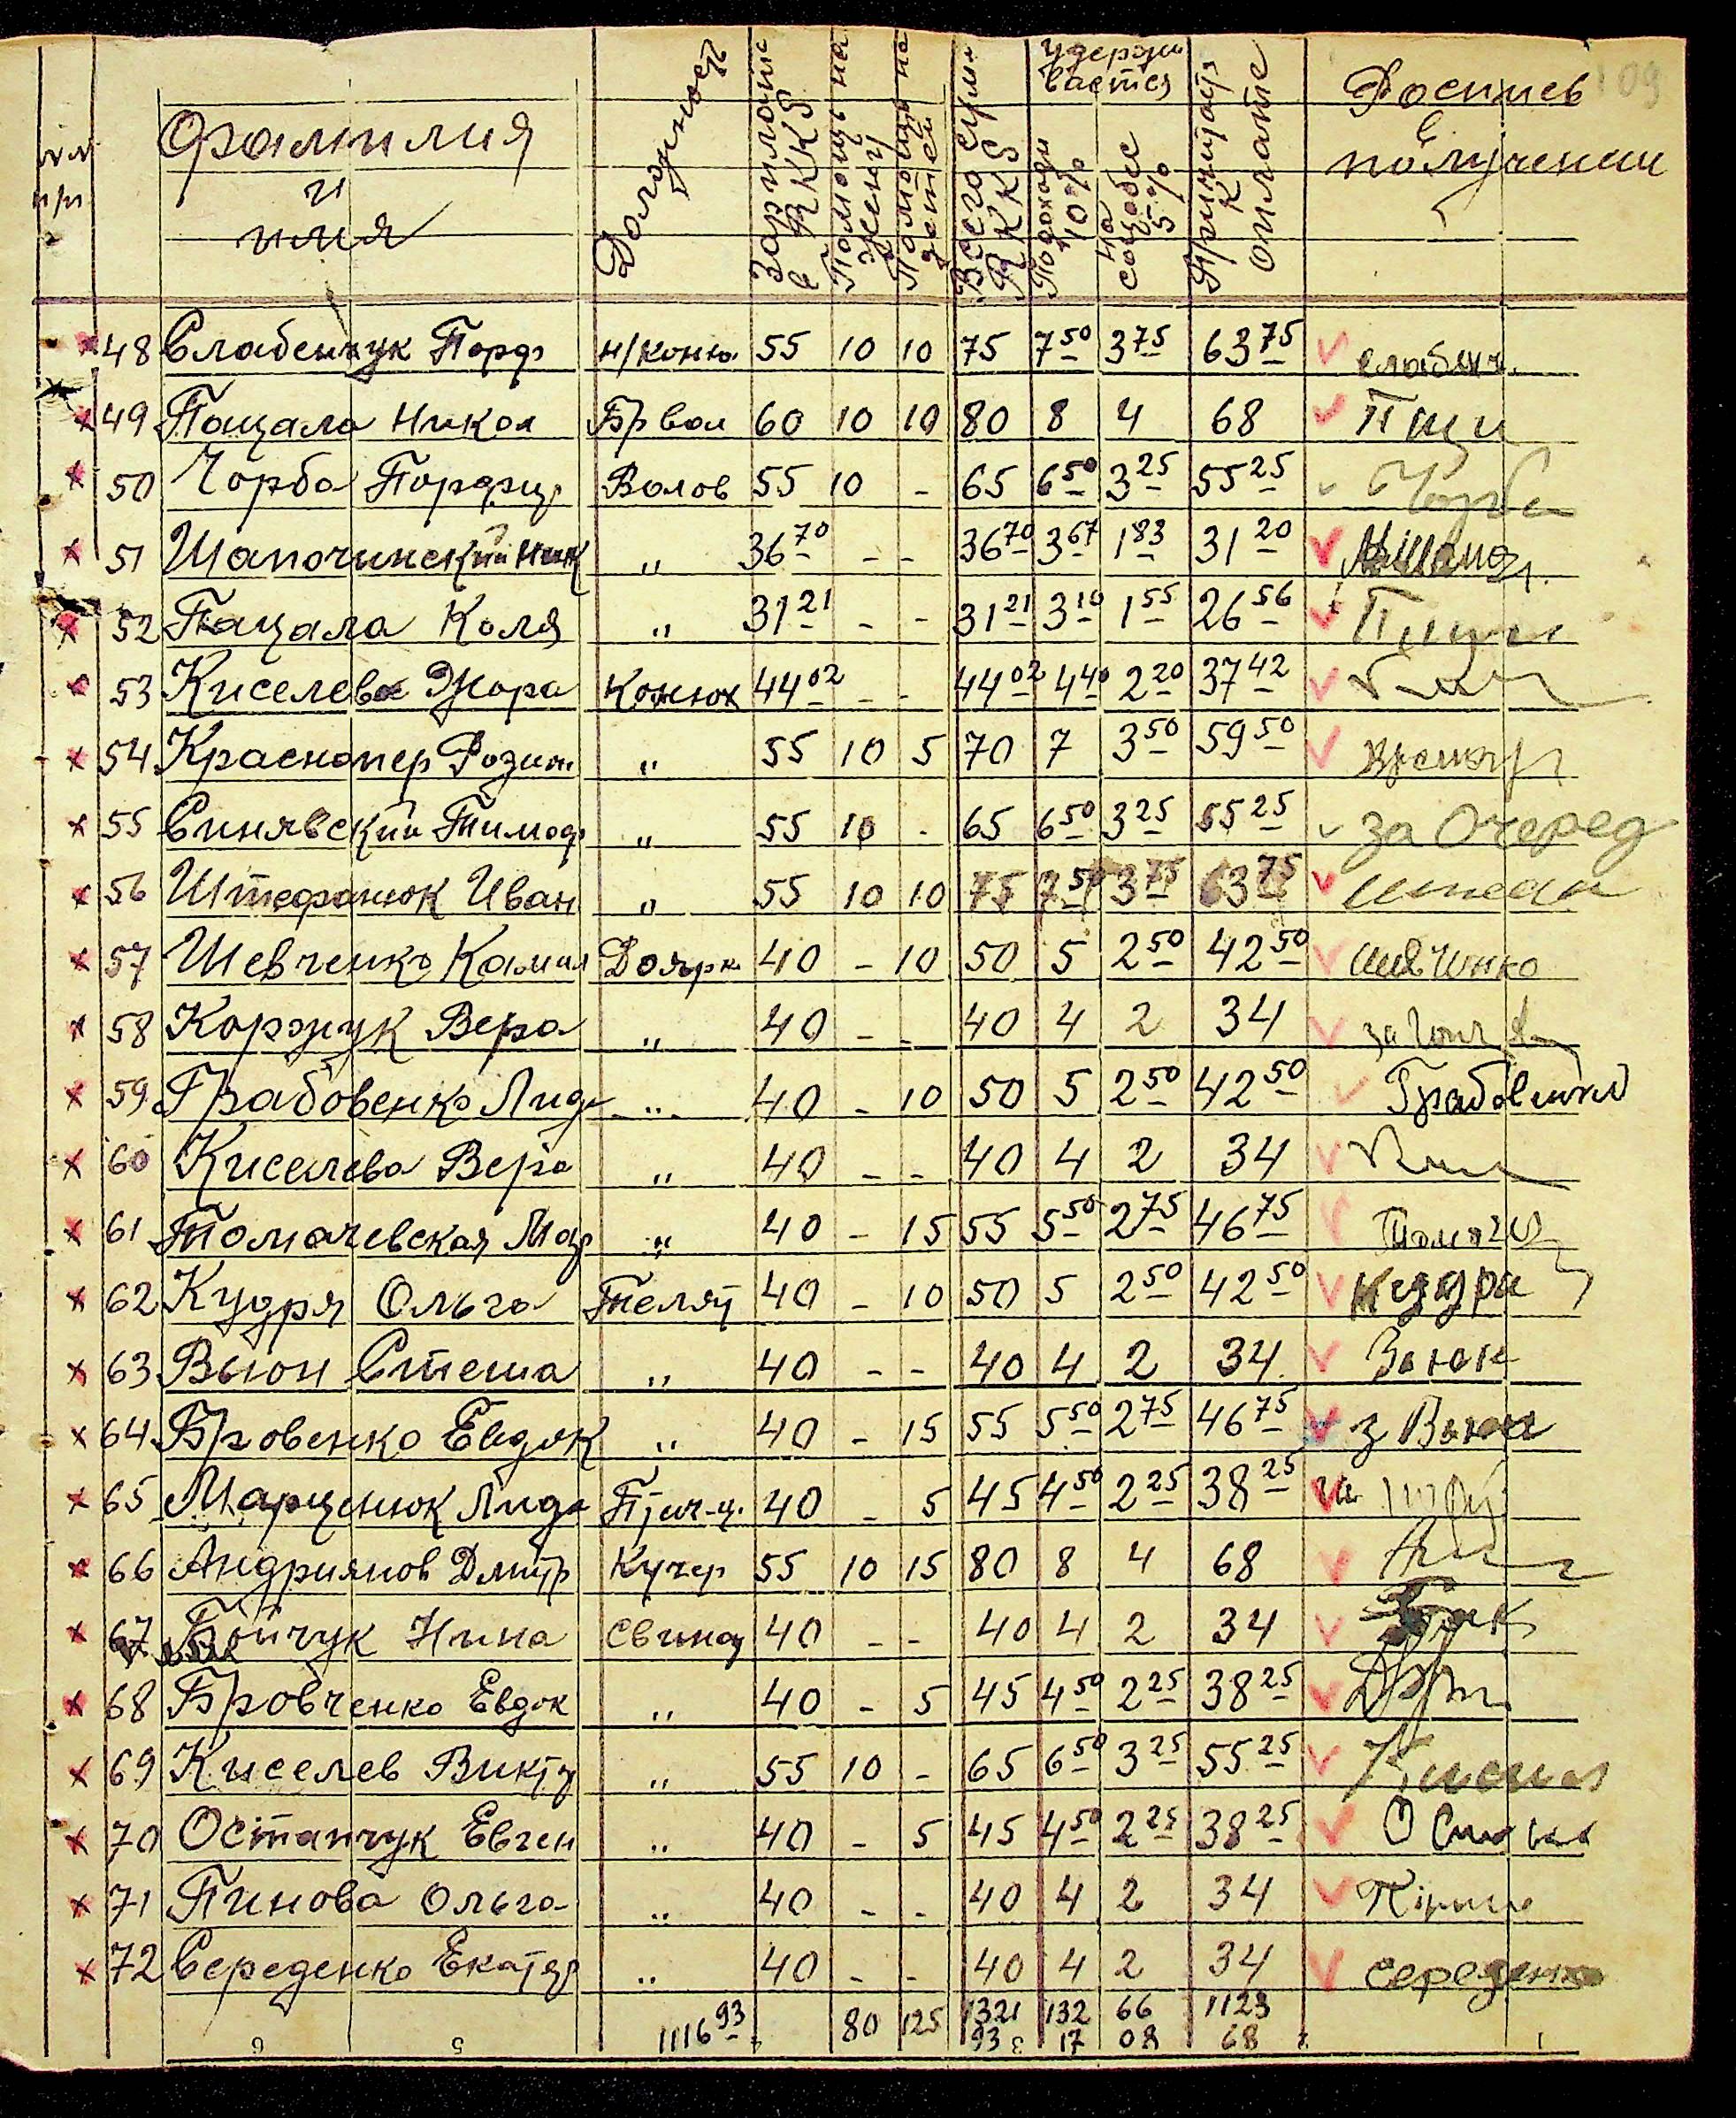 109
№№ п/п
Фамилия и имя
Должност
Зарплата в RKKS
Помощь на жену
Помощь на детей
Всего сумм RKKS
Удержи вается
Подоходн 10%
На соцобес 5%
Причитаетс к оплате
Росписьв в получении
48 Слабенчук Порф н/коню. 55 10 10 75 7 50 3 75 63 75 слабенч.
49 Пащала Никол Бр вол 60 10 10 80 8 4 68 Пащ
50 Чорба Порфир Волов 55 10 - 65 6 50 3 25 55 25 Чорба
51 Шапочинский Ник " 36 70 - - 36 70 3 67 1 83 31 20
52 Пащала Коля " 31 21 - - 31 21 3 10 1 55 26 56
53 Киселева Жора Конюх 44 02 - - 44 02 4 40 2 20 37 42
54 Краснопер Розин " 55 10 5 70 7 3 50 59 50
55 Синявский Тимоф " 55 10 - 65 6 50 3 25 55 25 за Очеред
56 Штефанюк Иван " 55 10 10 75 7 50 3 75 63 75
57 Шевченко Камил Доярк 40 - 10 50 5 2 50 42 50 Шевченко
58 Коржук Вера " 40 - - 40 4 2 34
59 Грабовенко Лид " 40 - 10 50 5 2 50 42 50
60 Киселева Вера " 40 - - 40 4 2 34
61 Томачевская Мар " 40 - 15 55 5 50 2 75 46 75
62 Кудря Ольга Телят 40 - 10 50 5 2 50 42 50 Кудря
63 Вьюн Стеша " 40 - - 40 4 2 34 Вьюн
64 Бровенко Евдок " 40 - 15 55 5 50 2 75 46 75 з Вьюн
65 Марценюк Лида Птич-ц. 40 - 5 45 4 50 2 25 38 25
66 Андриянов Дмитр Кучер 55 10 15 80 8 4 68
67 Бойчук Нина Свинар 40 - - 40 4 2 34
68 Бровченко Евдок " 40 - 5 45 4 50 2 25 38 25
69 Киселев Виктр " 55 10 - 65 6 50 3 25 55 25
70 Остапчук Евген " 40 - 5 45 4 50 2 25 38 25
71 Пинова Ольга " 40 - - 40 4 2 34
72 Середенко Екатер " 40 - - 40 4 2 34 Середенко
1116 93 80 125 1321 93 132 17 66 08 1123 68